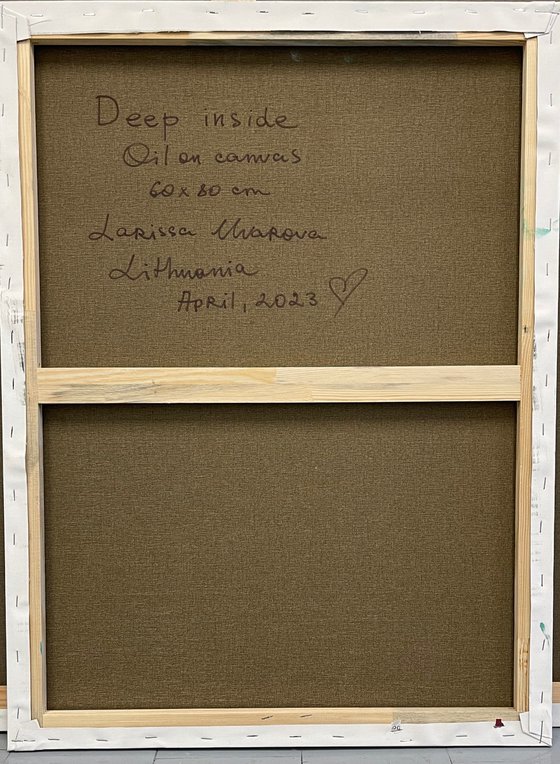 Deep inside
Oil on canvas
60 x 80 cm
Larissa Uvarova
Lithuania
April, 2023